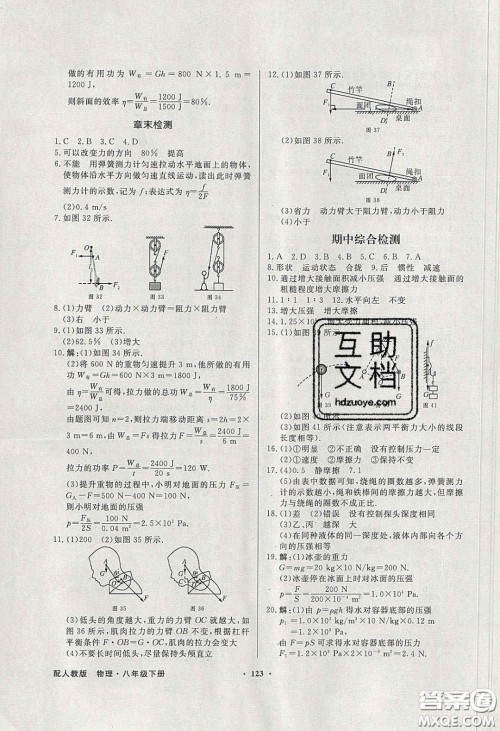 做的有用功为 W有=Gh=800 N×1.5 m=
1200 J
则斜面的效率 η=W有/W总=1200 J/1500 J=80%.
章末检测
1.C 2.B 3.C 4.D
5.可以改变力的方向 80% 提高
6.不能 用弹簧测力计匀速拉动水平地面上的物体,
使物体沿水平方向做匀速直线运动,读出此时弹簧
测力计的示数,记为 f;表达式为 η=f/2F
(2)0.4 m/s
7.如图 32 所示.
图 32
图 33
图 34
8.(1)力臂 (2)动力×动力臂=阻力×阻力臂
(3)右 小于
9.(1)如图 33 所示.
(2)62.5% (3)增大
10.解:(1)如图 34 所示.
(2)将 600 N 的重物匀速提升 3 m,他所做的有
用功为 2400 J,滑轮组的机械效率为 75%,
由 η=W有/W总 可得,拉力做的总功 W总=W有/η=1800 J/75%
=2400 J
由题图可知 n=2,则拉力端移动距离 s=2h=2×
3 m=6 m,由 W总=Fs 得拉力 F=W总/s=2400 J/6 m=
400 N
拉力的功率 P=W总/t=2400 J/20 s=120 W
(3)提升重物的过程中,小明对地面的压力
则小明对地面的压强
p=F压/S=100 N/0.04 m²=2.5×10³ Pa
11.(1)200 (2)如图 35 所示.
图 35
图 36
(3)低头的角度越大,重力的力臂 OC 越大,如
图 36 所示,肌肉拉力的力臂 OB 不变,根据杠杆
平衡条件 F·OB=G·OC,肌肉的拉力变大
(4)不要长时间低头
12.(1)如图 37 所示.
竹竿
面团
绳扣
桌面
图 37
(2)如图 38 所示.
竹竿
面团
绳扣
桌面
图 38
(3)省力 动力臂大于阻力臂,动力小于阻力
(4)小于
期中综合检测
1.A 2.D 3.B 4.C 5.C 6.B 7.C
8.形状 运动状态 合拢 9.后 惯性 减速
10.通过增大接触面积减小压强 通过增大接触面的
粗糙程度增大摩擦力
11.1∶1 1∶3 12.水平向左 不变
13.增大压强 增大摩擦
14.1.25×10
15.如图 39 所示.
图 41
(2)如图
(3)如图 41 所示(注意表示两平衡力大小的线段
长度等长).
16.(1)①明显 ②不正确 没有控制压力一定
(2)①速度 ②摩擦力 ③没有影响
17.(4)0.5 静摩擦 7.1
(5)由表中数据可知,绳绕的圈数越多,弹簧测力
计示数越大,绳和铁棒间的摩擦力越大,但摩擦
力与绕绳的圈数不成正比
18.(1)差 (2)相同 没有控制探头深度相同
(3)乙、丙 越深 大
(4)在同种液体的同一深度,液体内部向各个方
向的压强相等
19.解:(1)冰壶的重力
G=mg=20 kg×10 N/kg=200 N
(2)冰壶停在冰面上时,对冰面的压强
20.解:(1)由 p=ρgh 得水对容器底部的压强
由 p=F/S 得水对容器底部的压力
(2)由 p=ρgh 得水对容器底部的压强
互助
文档
hdzuoye.com
配人教版 物理·八年级下册
123
答案圈
MXQE.COM